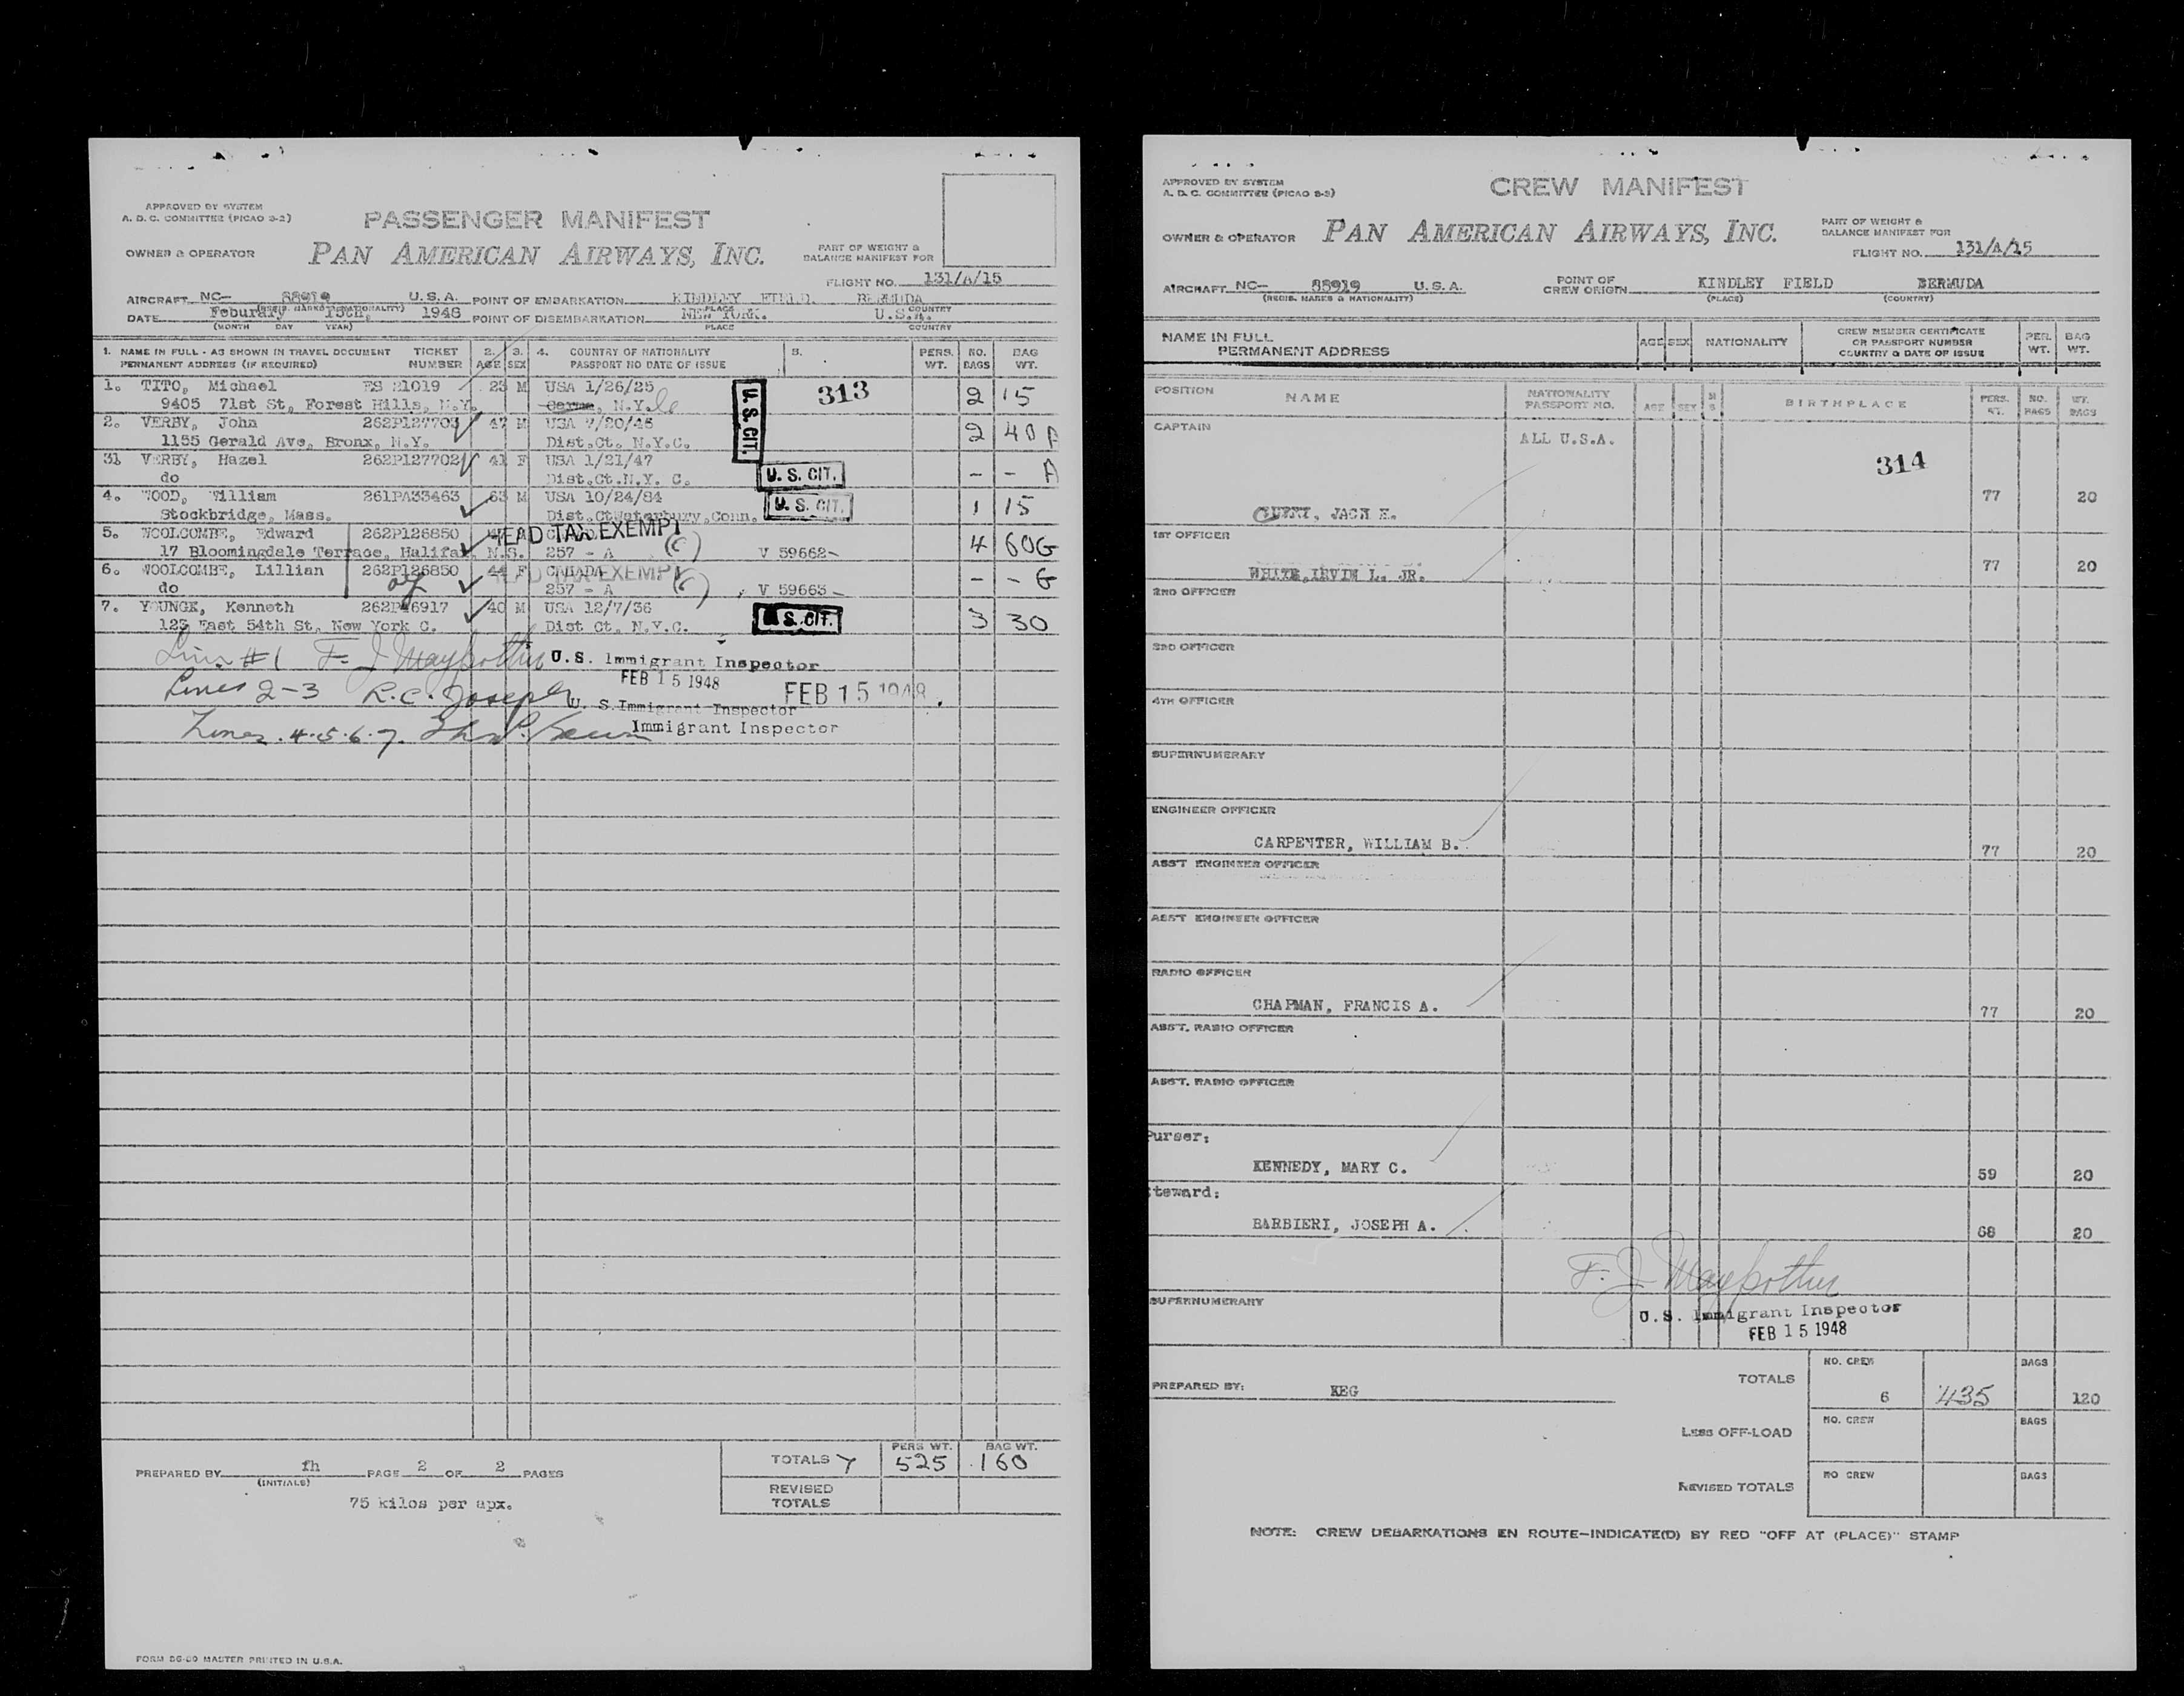 APPROVED BY SYSTEM
A. D. C. COMMITTEE (PICAO 8-2)
PASSENGER MANIFEST
OWNER & OPERATOR PAN AMERICAN AIRWAYS, INC. PART OF WEIGHT &
BALANCE MANIFEST FOR
FLIGHT NO. 131/A/15
AIRCRAFT NC- 88919 U.S.A. POINT OF EMBARKATION KINDLEY FIELD. BERMUDA
(REGIS. MARKS & NATIONALITY) PLACE COUNTRY
DATE Feburary 15th, 1948 POINT OF DISEMBARKATION NEW YORK. U.S.A.
(MONTH DAY YEAR) PLACE COUNTRY
1. NAME IN FULL - AS SHOWN IN TRAVEL DOCUMENT TICKET 2. 3. 4. COUNTRY OF NATIONALITY 5. PERS. NO. BAG
PERMANENT ADDRESS (IF REQUIRED) NUMBER AGE SEX PASSPORT NO DATE OF ISSUE WT. BAGS WT.
1. TITO, Michael ES 21019 23 M USA 1/26/25 313 2 15
9405 71st St, Forest Hills, N.Y. N.Y. U.S. CIT.
2. VERBY, John 262P127703 47 M USA 7/20/45 2 40 A
1155 Gerald Ave, Bronx, N.Y. Dist.Ct. N.Y.C.
31 VERBY, Hazel 262P127702 41 F USA 1/21/47 - - A
do Dist.Ct.N.Y. C. U. S. CIT.
4. WOOD, William 261PA33463 63 M USA 10/24/84 1 15
Stockbridge, Mass. Dist.CtWaterbury,Conn. U. S. CIT.
5. WOOLCOMBE, Edward 262P126850 HEAD TAX EXEMPT 4 60G
17 Bloomingdale Terrace, Halifax, N.S. 257 - A (c) V 59662-
6. WOOLCOMBE, Lillian 262P126850 44 F CANADA HEAD TAX EXEMPT - - G
do 257 - A (c) V 59663-
7. YOUNGK, Kenneth 262P46917 40 M USA 12/7/36 3 30
123 East 54th St, New York C. Dist Ct. N.Y.C. U.S. CIT.
Line #1 F. J Maypother U.S. Immigrant Inspector
FEB 15 1948 FEB 15 1948
Lines 2-3 R.C. Joseph U. S. Immigrant Inspector
Lines .4.5.6.7. Immigrant Inspector
PERS WT. BAG WT.
TOTALS 7 525 160
PREPARED BY fh PAGE 2 OF 2 PAGES
(INITIALS)
REVISED
TOTALS
75 kilos per apx.
FORM DG-50 MASTER PRINTED IN U.S.A.
APPROVED BY SYSTEM
A. D. C. COMMITTEE (PICAO 8-3)
CREW MANIFEST
OWNER & OPERATOR PAN AMERICAN AIRWAYS, INC. PART OF WEIGHT &
BALANCE MANIFEST FOR
FLIGHT NO. 131/A/15
AIRCRAFT NC- 88919 U.S.A. POINT OF
CREW ORIGIN KINDLEY FIELD BERMUDA
(REGIS. MARKS & NATIONALITY) (PLACE) (COUNTRY)
NAME IN FULL
PERMANENT ADDRESS AGE SEX NATIONALITY CREW MEMBER CERTIFICATE
OR PASSPORT NUMBER
COUNTRY & DATE OF ISSUE PER. WT. BAG WT.
POSITION NAME NATIONALITY
PASSPORT NO. AGE SEX M S BIRTHPLACE PERS. WT. NO. BAGS WT. BAGS
CAPTAIN ALL U.S.A. 314
JACK E. 77 20
1ST OFFICER
WHITE, IRVIN L. JR. 77 20
2ND OFFICER
3RD OFFICER
4TH OFFICER
SUPERNUMERARY
ENGINEER OFFICER
CARPENTER, WILLIAM B. 77 20
ASS'T ENGINEER OFFICER
ASS'T ENGINEER OFFICER
RADIO OFFICER
CHAPMAN, FRANCIS A. 77 20
ASS'T. RADIO OFFICER
ASS'T. RADIO OFFICER
Purser:
KENNEDY, MARY C. 59 20
teward:
BARBIERI, JOSEPH A. 68 20
F. J Maypother
SUPERNUMERARY U.S. Immigrant Inspector
FEB 15 1948
PREPARED BY: KEG TOTALS NO. CREW 6 435 BAGS 120
LESS OFF-LOAD NO. CREW BAGS
REVISED TOTALS NO CREW BAGS
NOTE: CREW DEBARKATIONS EN ROUTE-INDICATE(D) BY RED "OFF AT (PLACE)" STAMP